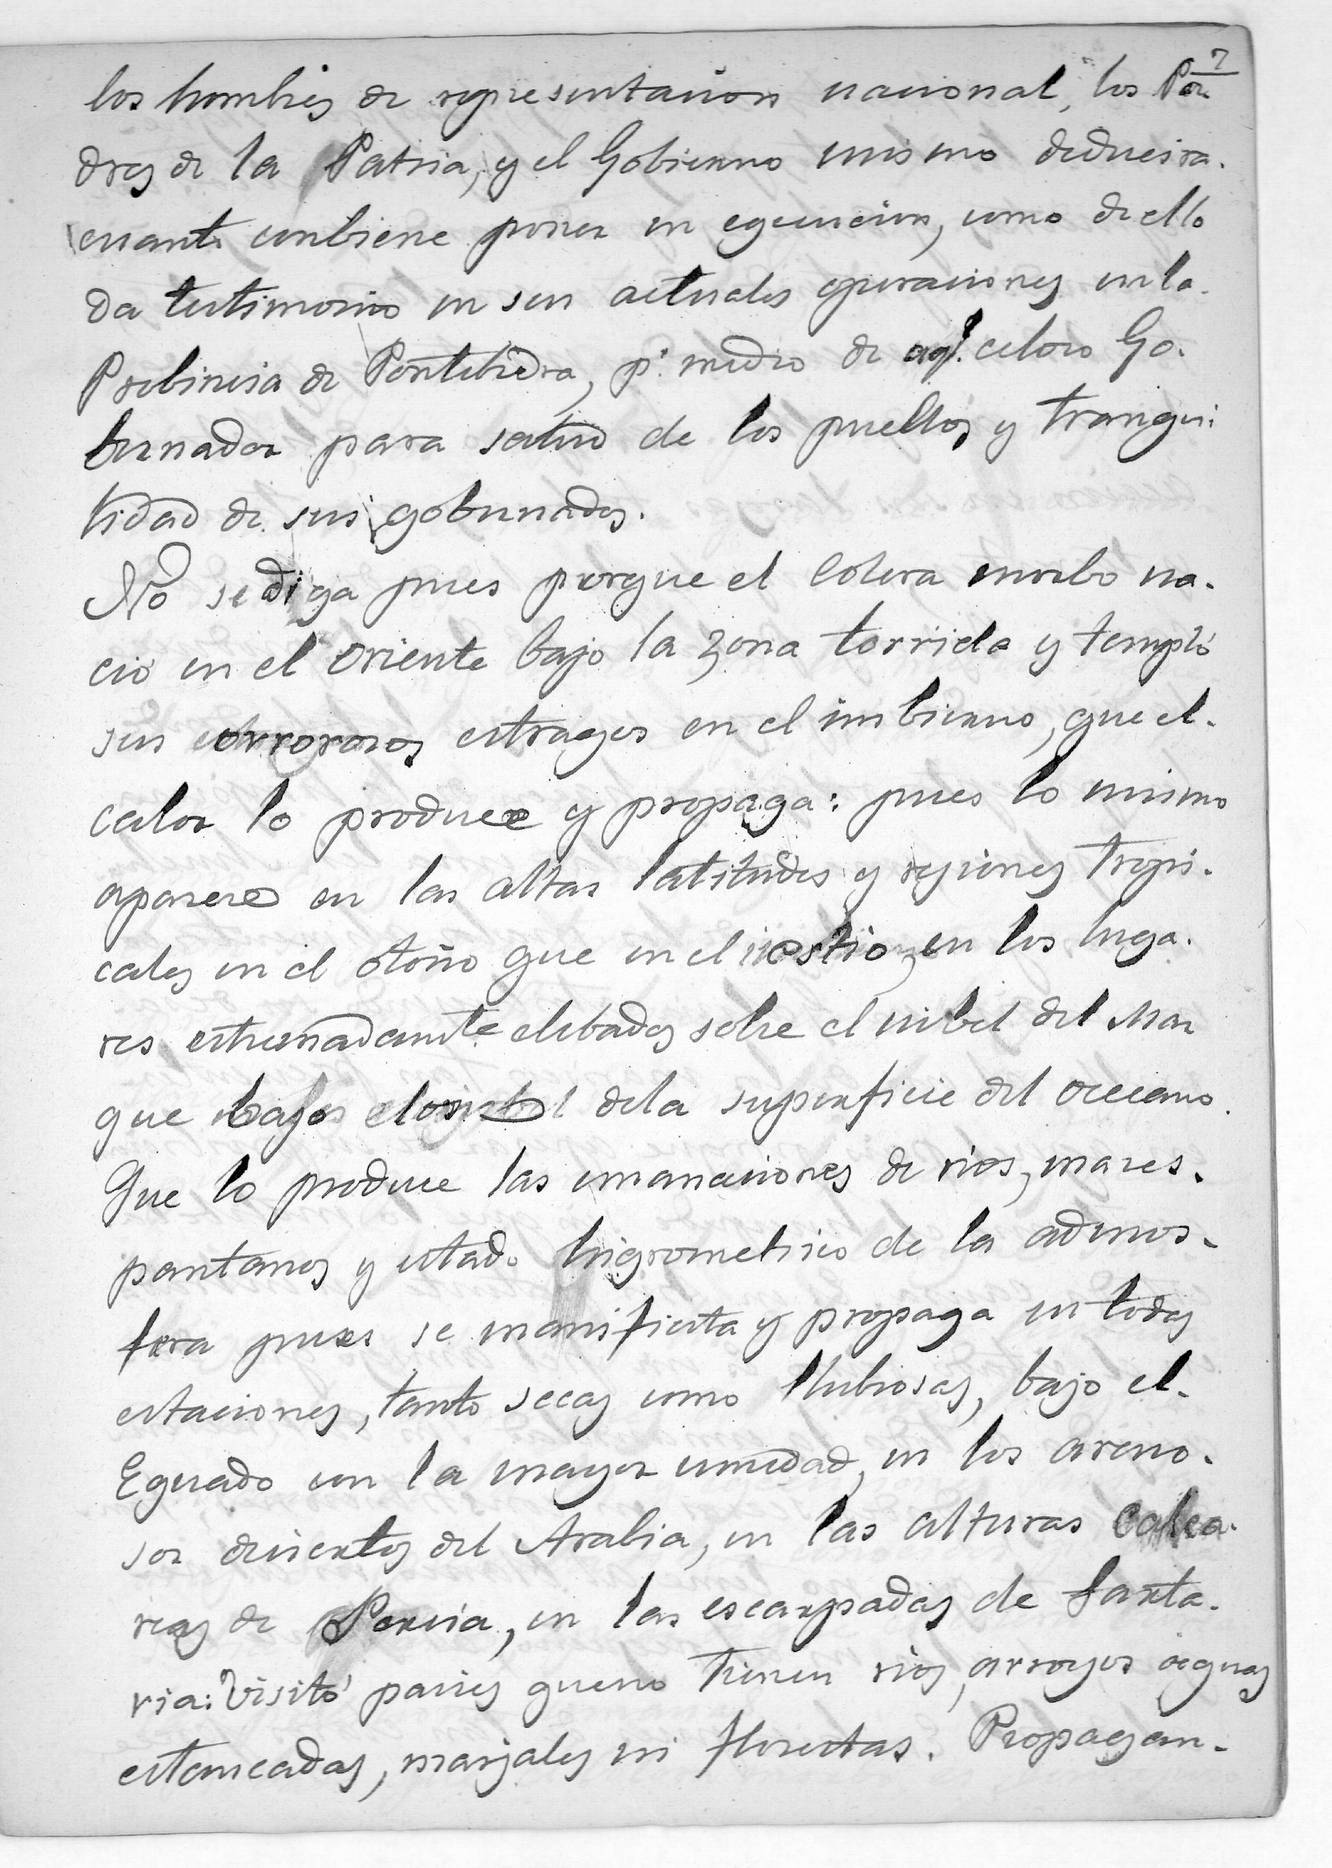 7
los hombres de representacion nacional, los Pa-
dres de la Patria, y el Gobierno mismo deducira.
cuanto conbiene poner en egecucion, como de ello
da testimonio en sus actuales operaciones en la.
Probincia de Pontebedra, pr. medio de aql. celoso Go.
bernador para salud de los pueblos y tranqui:
lidad de sus gobernados.
No se diga pues porque el Colera morbo na.
ció en el Oriente bajo la zona torrida y templó
sus orrorosos estragos en el imbierno, que el.
calor lo produce y propaga: pues lo mismo
aparece en las altas latitudes y regiones tropi.
cales en el otoño que en el estio, en los luga.
res estremadamte elebados sobre el nibel del Mar
que bajos el nibel dela superficie del occeano.
Que lo produce las emanaciones de rios, mares.
pantanos y estado higrometrico de la admos-
fera pues se manifiesta y propaga en todas
estaciones, tanto secas como llubiosas, bajo el.
Eguado con la mayor umedad, en los areno.
sos desiertos del Arabia, en las alturas calca.
reas de Persia, en las escarpadas de Tarta.
ria: Visitó paises queno tienen rios, arroyos aguas
estancadas, marjales ni florestas. Propagan-